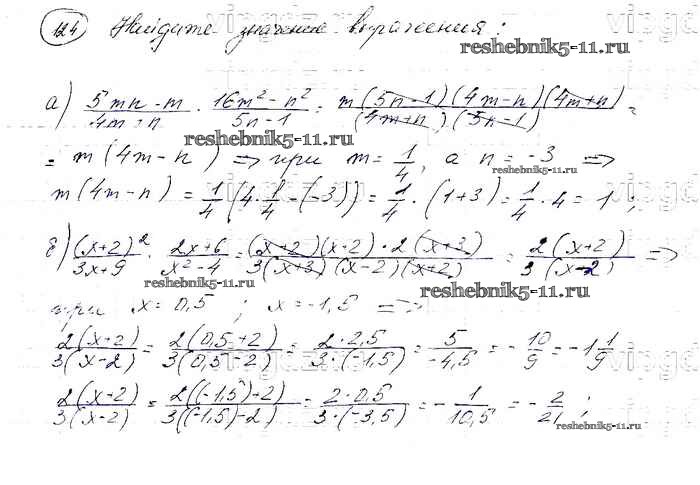 124 Найдите значение выражения:
reshebnik5-11.ru
а) (5mn - m)/(4m + n) · (16m² - n²)/(5n - 1) = m(5n - 1)(4m - n)(4m + n)/(4m + n)(5n - 1) =
reshebnik5-11.ru
= m(4m - n) => при m = 1/4, а n = -3 =>
reshebnik5-11.ru
m(4m - n) = 1/4(4·1/4 - (-3)) = 1/4 · (1+3) = 1/4 · 4 = 1;
б) (x+2)²/(3x+9) · (2x+6)/(x²-4) = (x+2)(x+2)·2(x+3)/3(x+3)(x-2)(x+2) = 2(x+2)/3(x-2) =>
reshebnik5-11.ru
reshebnik5-11.ru
при x = 0,5; x = -1,5 =>
2(x+2)/3(x-2) = 2(0,5+2)/3(0,5-2) = 2·2,5/3·(-1,5) = 5/-4,5 = -10/9 = -1 1/9
2(x+2)/3(x-2) = 2((-1,5)+2)/3((-1,5)-2) = 2·0,5/3·(-3,5) = -1/10,5 = -2/21;
reshebnik5-11.ru